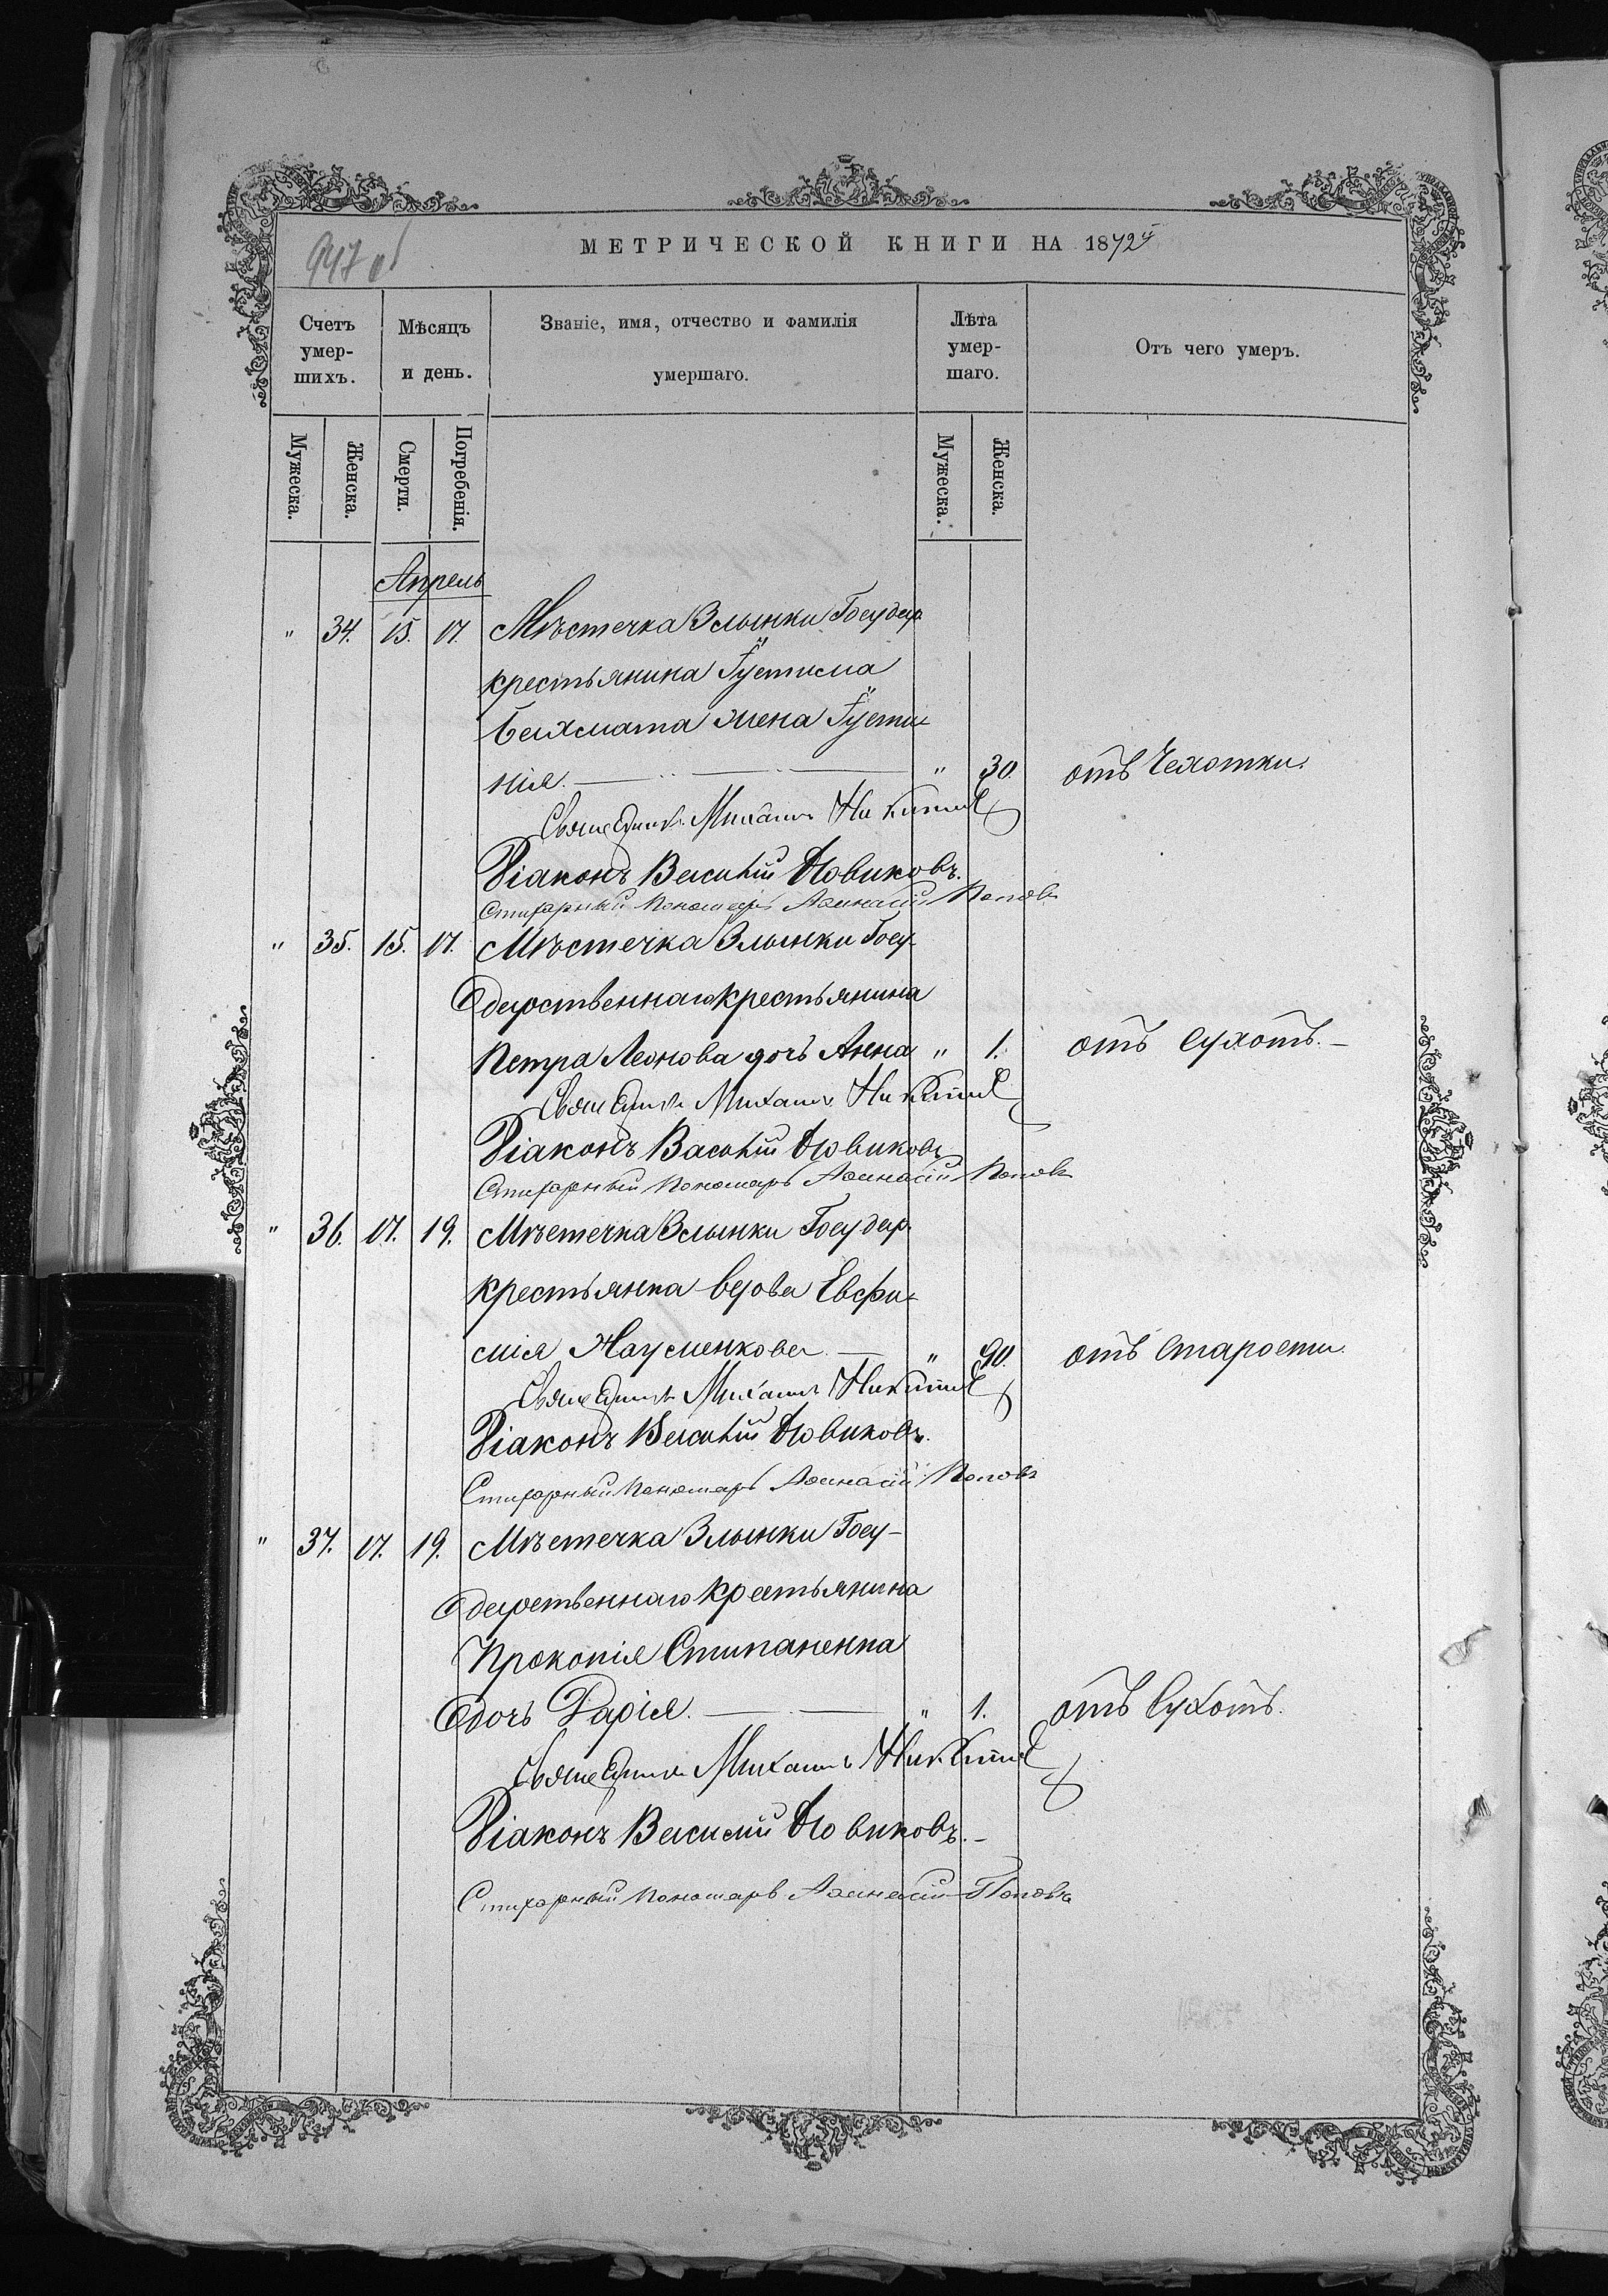 947 об
МЕТРИЧЕСКОЙ КНИГИ НА 1872й
Счетъ умер-шихъ.
Мѣсяцъ и день.
Званіе, имя, отчество и фамилія умершаго.
Лѣта умер-шаго.
Отъ чего умеръ.
Мужеска. Женска. Смерти. Погребенія. Мужеска. Женска.
Апрель
" 34. 15. 17. Мѣстечка Злынки Государ.
крестьянина Іустима
Бахмата жена Іусти-
нія. " 30. отъ Чехотки.
Священникъ Михаилъ Никитинъ
Діаконъ Василій Новиковъ.
Стихарный Пономарь Аѳанасій Поповъ
" 35. 15. 17. Мѣстечка Злынки Госу-
дарственнаго крестьянина
Петра Леонова дочь Анна " 1. отъ сухотъ.
Священникъ Михаилъ Никитинъ
Діаконъ Василій Новиковъ
Стихарный Пономарь Аѳанасій Поповъ
" 36. 17. 19. Мѣстечка Злынки Государ.
крестьянка вдова Евфи-
мія Науменкова. " 90. отъ старости.
Священникъ Михаилъ Никитинъ
Діаконъ Василій Новиковъ.
Стихарный Пономарь Аѳанасій Поповъ
" 37. 17. 19. Мѣстечка Злынки Госу-
дарственнаго крестьянина
Прокопія Стипаненка
дочь Дарія. " 1. отъ Сухотъ.
Священникъ Михаилъ Никитинъ
Діаконъ Василий Новиковъ.
Стихарный Пономарь Аѳанасій Поповъ